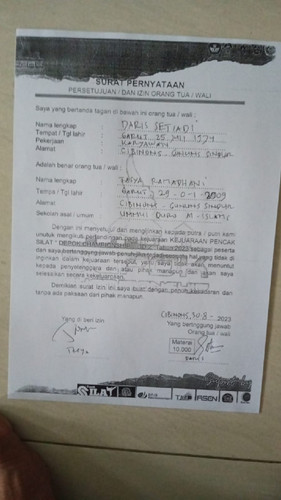 SURAT PERNYATAAN
PERSETUJUAN / DAN IZIN ORANG TUA / WALI
Saya yang bertanda tangan di bawah ini orang tua / wali :
Nama lengkap : DARIS SETIADI
Tempat / Tgl lahir : GARUT 25 1974
Pekerjaan : KARYAWAN
Alamat : CIBINONG - GUNUNG SINDUR
Adalah benar orang tua / wali :
Nama lengkap : TASYA RAMADHANI
Tempa / Tgl lahir : GARUT 29-01-2009
Alamat : CIBINONG - GUNUNG SINDUR
Sekolah asal / umum : UMMUL QURO AL-ISLAMI
Dengan ini menyetujui dan mengizinkan kepada putra / putri kami
untuk mengikuti pertandingan pada kejuaraan KEJUARAAN PENCAK
SILAT " DEPOK Tahun 2023 sebagai peserta
dan saya bertanggung jawab penuh jika terjadi sesuatu hal yang tidak di
inginkan dalam kejuaraan tersebut, saya tidak akan menuntut
kepada penyelenggara dan atau pihak manapun dan akan saya
selesaikan secara kekeluargaan.
Demikian surat izin ini saya buat dengan penuh kesadaran dan
tanpa ada paksaan dari pihak manapun.
CIBINONG, 30-8-2023
Yang di beri izin
Yang bertanggung jawab
Orang tua / wali
Materai
10.000
Tasya
SILAT